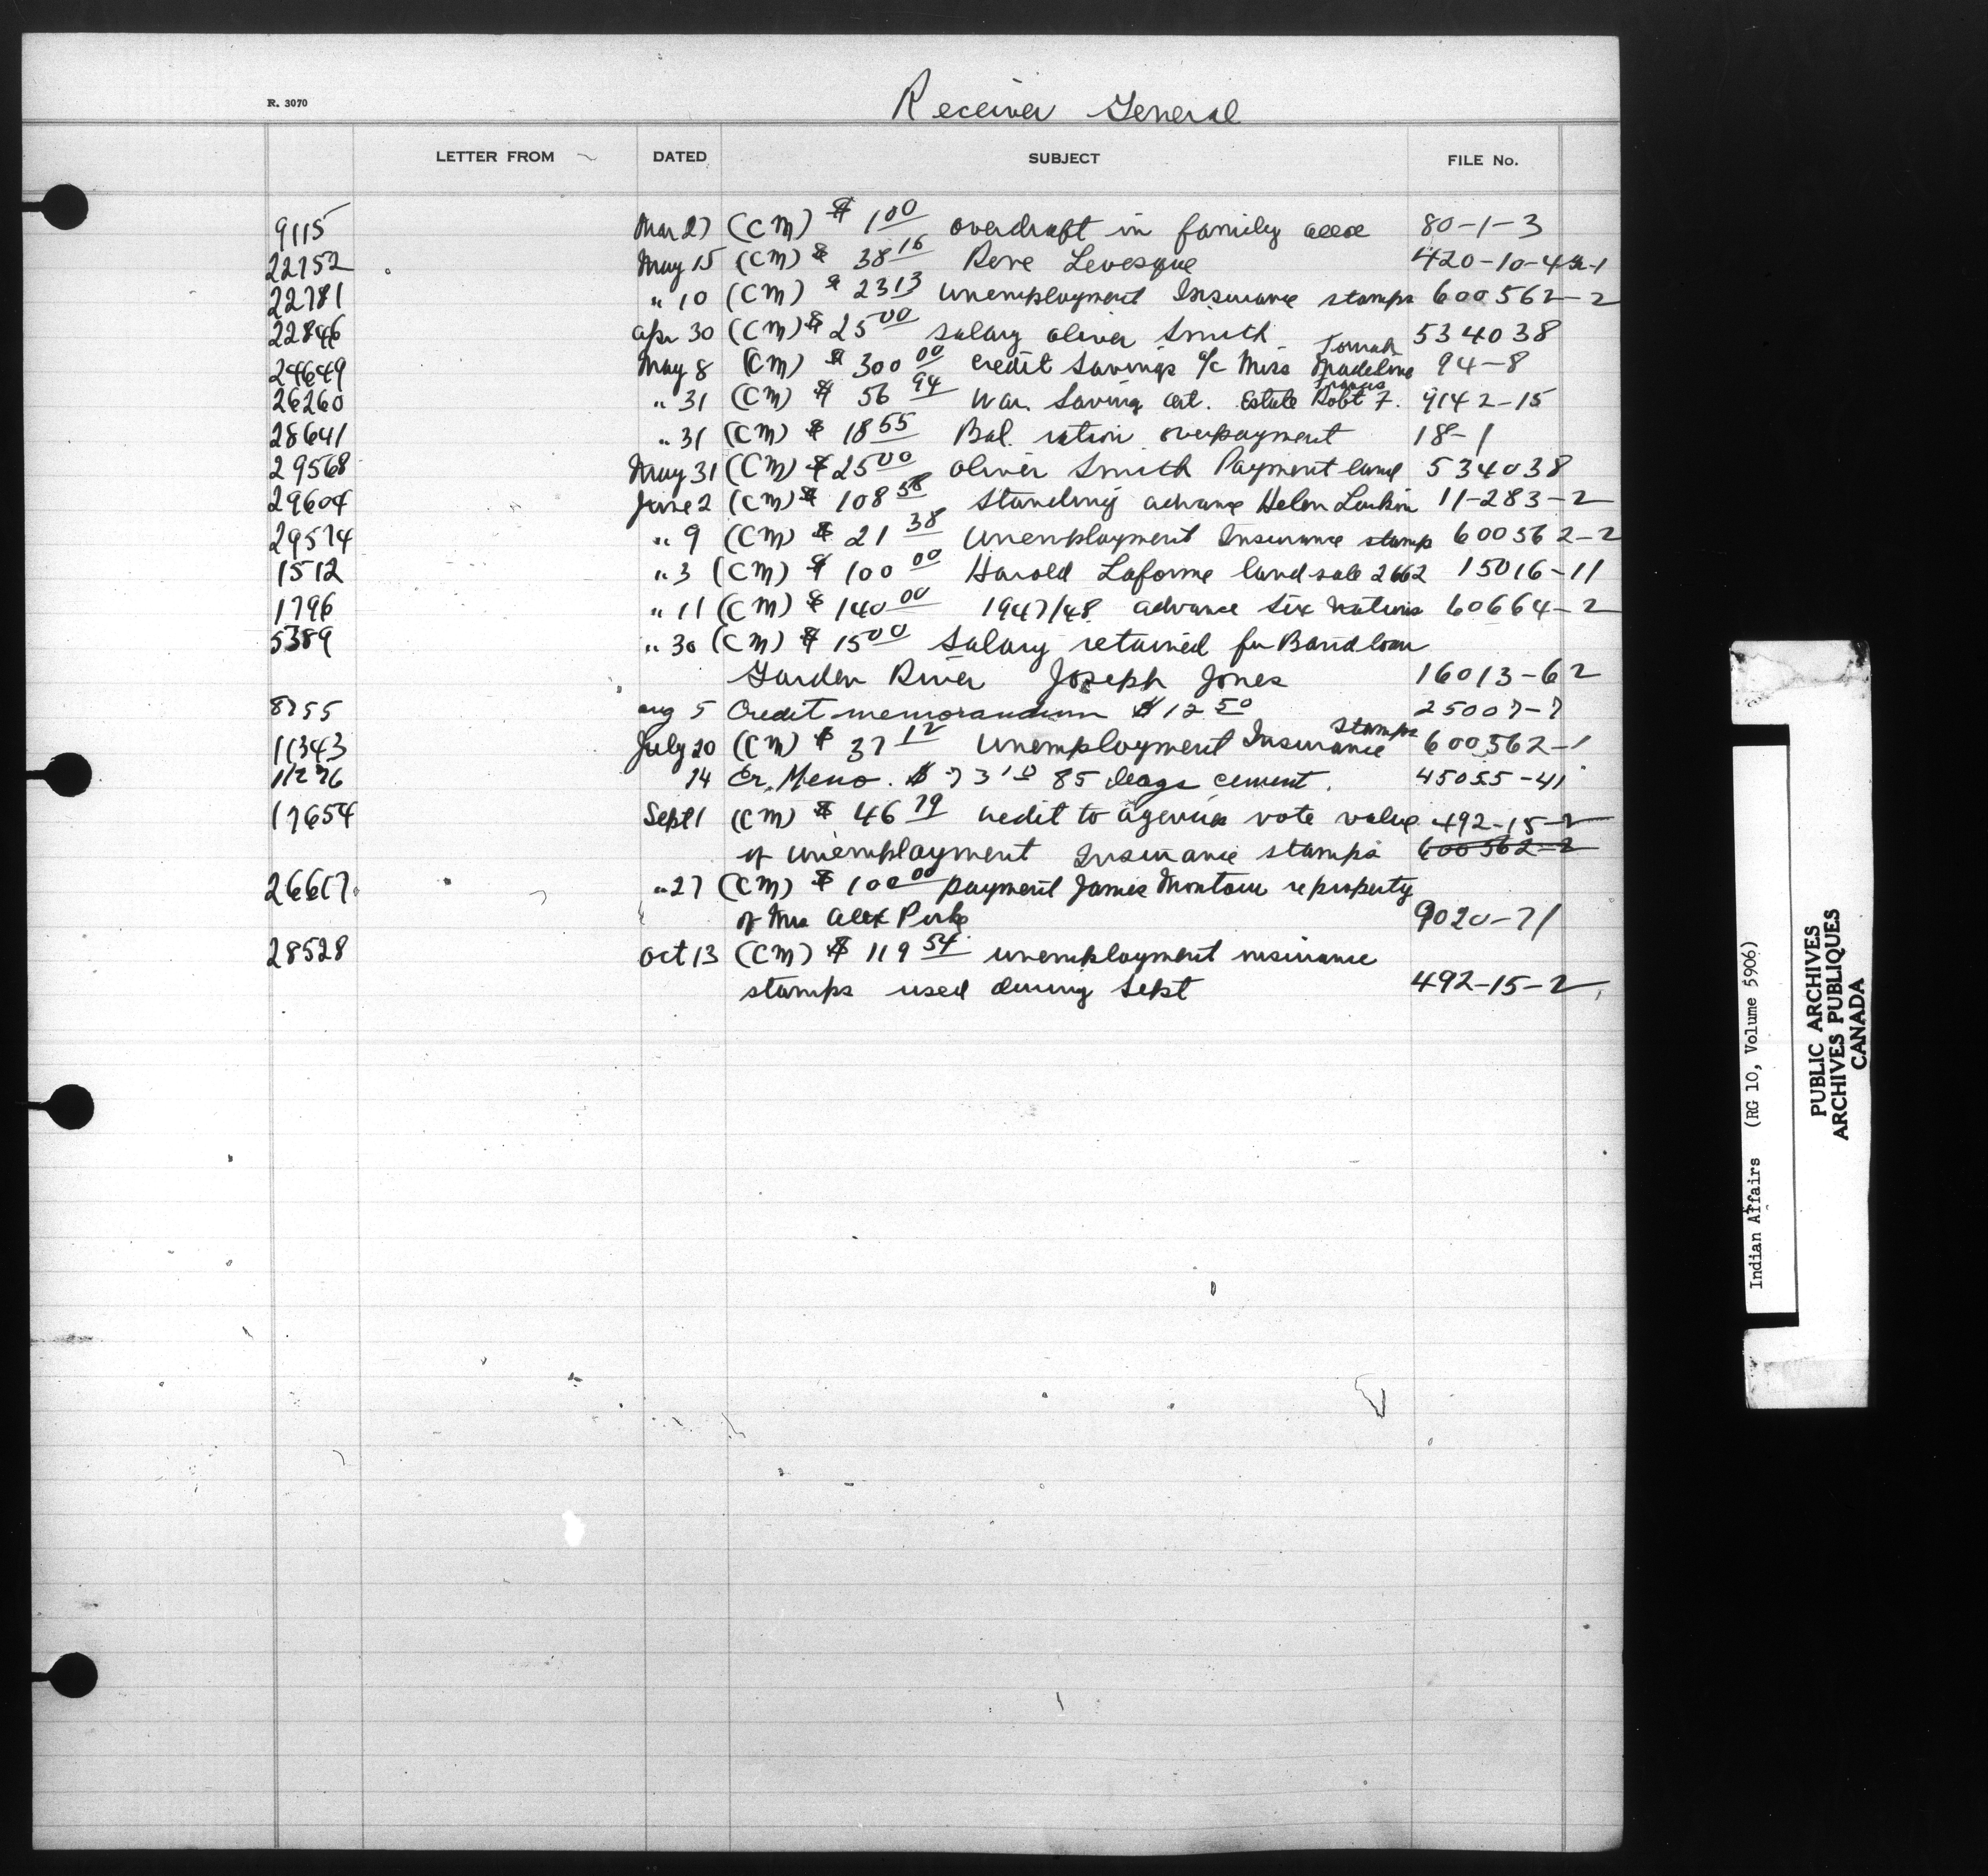 R. 3070
Receiver General
LETTER FROM DATED SUBJECT FILE No.
9115 Mar 27 (CM) $ 1 00 overdraft in family acct 80-1-3
22752 May 15 (CM) $ 38 16 Rene Levesque 420-10-4
22781 " 10 (CM) $ 23 13 Unemployment Insurance stamps 600562-2
22846 Apr 30 (CM) $ 25 00 salary Oliver Smith 534038
24649 May 8 (CM) $ 300 00 credit Savings a/c Miss Madeline 94-8
26260 " 31 (CM) $ 56 94 War Saving Cert. Estate Robt F. Francis 9142-15
28641 " 31 (CM) $ 18 55 Bal. ration overpayment 18-1
29568 May 31 (CM) $ 25 00 Oliver Smith Payment land 534038
29604 June 2 (CM) $ 108 58 Standing advance Helen 11-283-2
29574 " 9 (CM) $ 21 38 Unemployment Insurance stamp 600562-2
1512 " 3 (CM) $ 100 00 Harold Laforme land sale 2662 15016-11
1796 " 11 (CM) $ 140 00 1947/48 advance Six Nations 60664-2
5389 " 30 (CM) $ 15 00 Salary retained for Band loan
Garden River Joseph Jones 16013-62
8755 Aug 5 Credit memorandum $ 12 50 25007-7
11343 July 20 (CM) $ 37 12 Unemployment Insurance Stamps 600562-1
11276 14 Cr. Memo. $ 73 10 85 bags cement. 45055-41
17654 Sept 1 (CM) $ 46 79 credit to agencies vote value 492-15-2
of unemployment Insurance stamps 600562-2
26617 " 27 (CM) $ 100 00 payment James Montour re property
of Mrs Alex 9020-71
28528 Oct 13 (CM) $ 119 54 unemployment insurance
stamps used during Sept 492-15-2
Indian Affairs (RG 10, Volume 5906)
PUBLIC ARCHIVES
ARCHIVES PUBLIQUES
CANADA